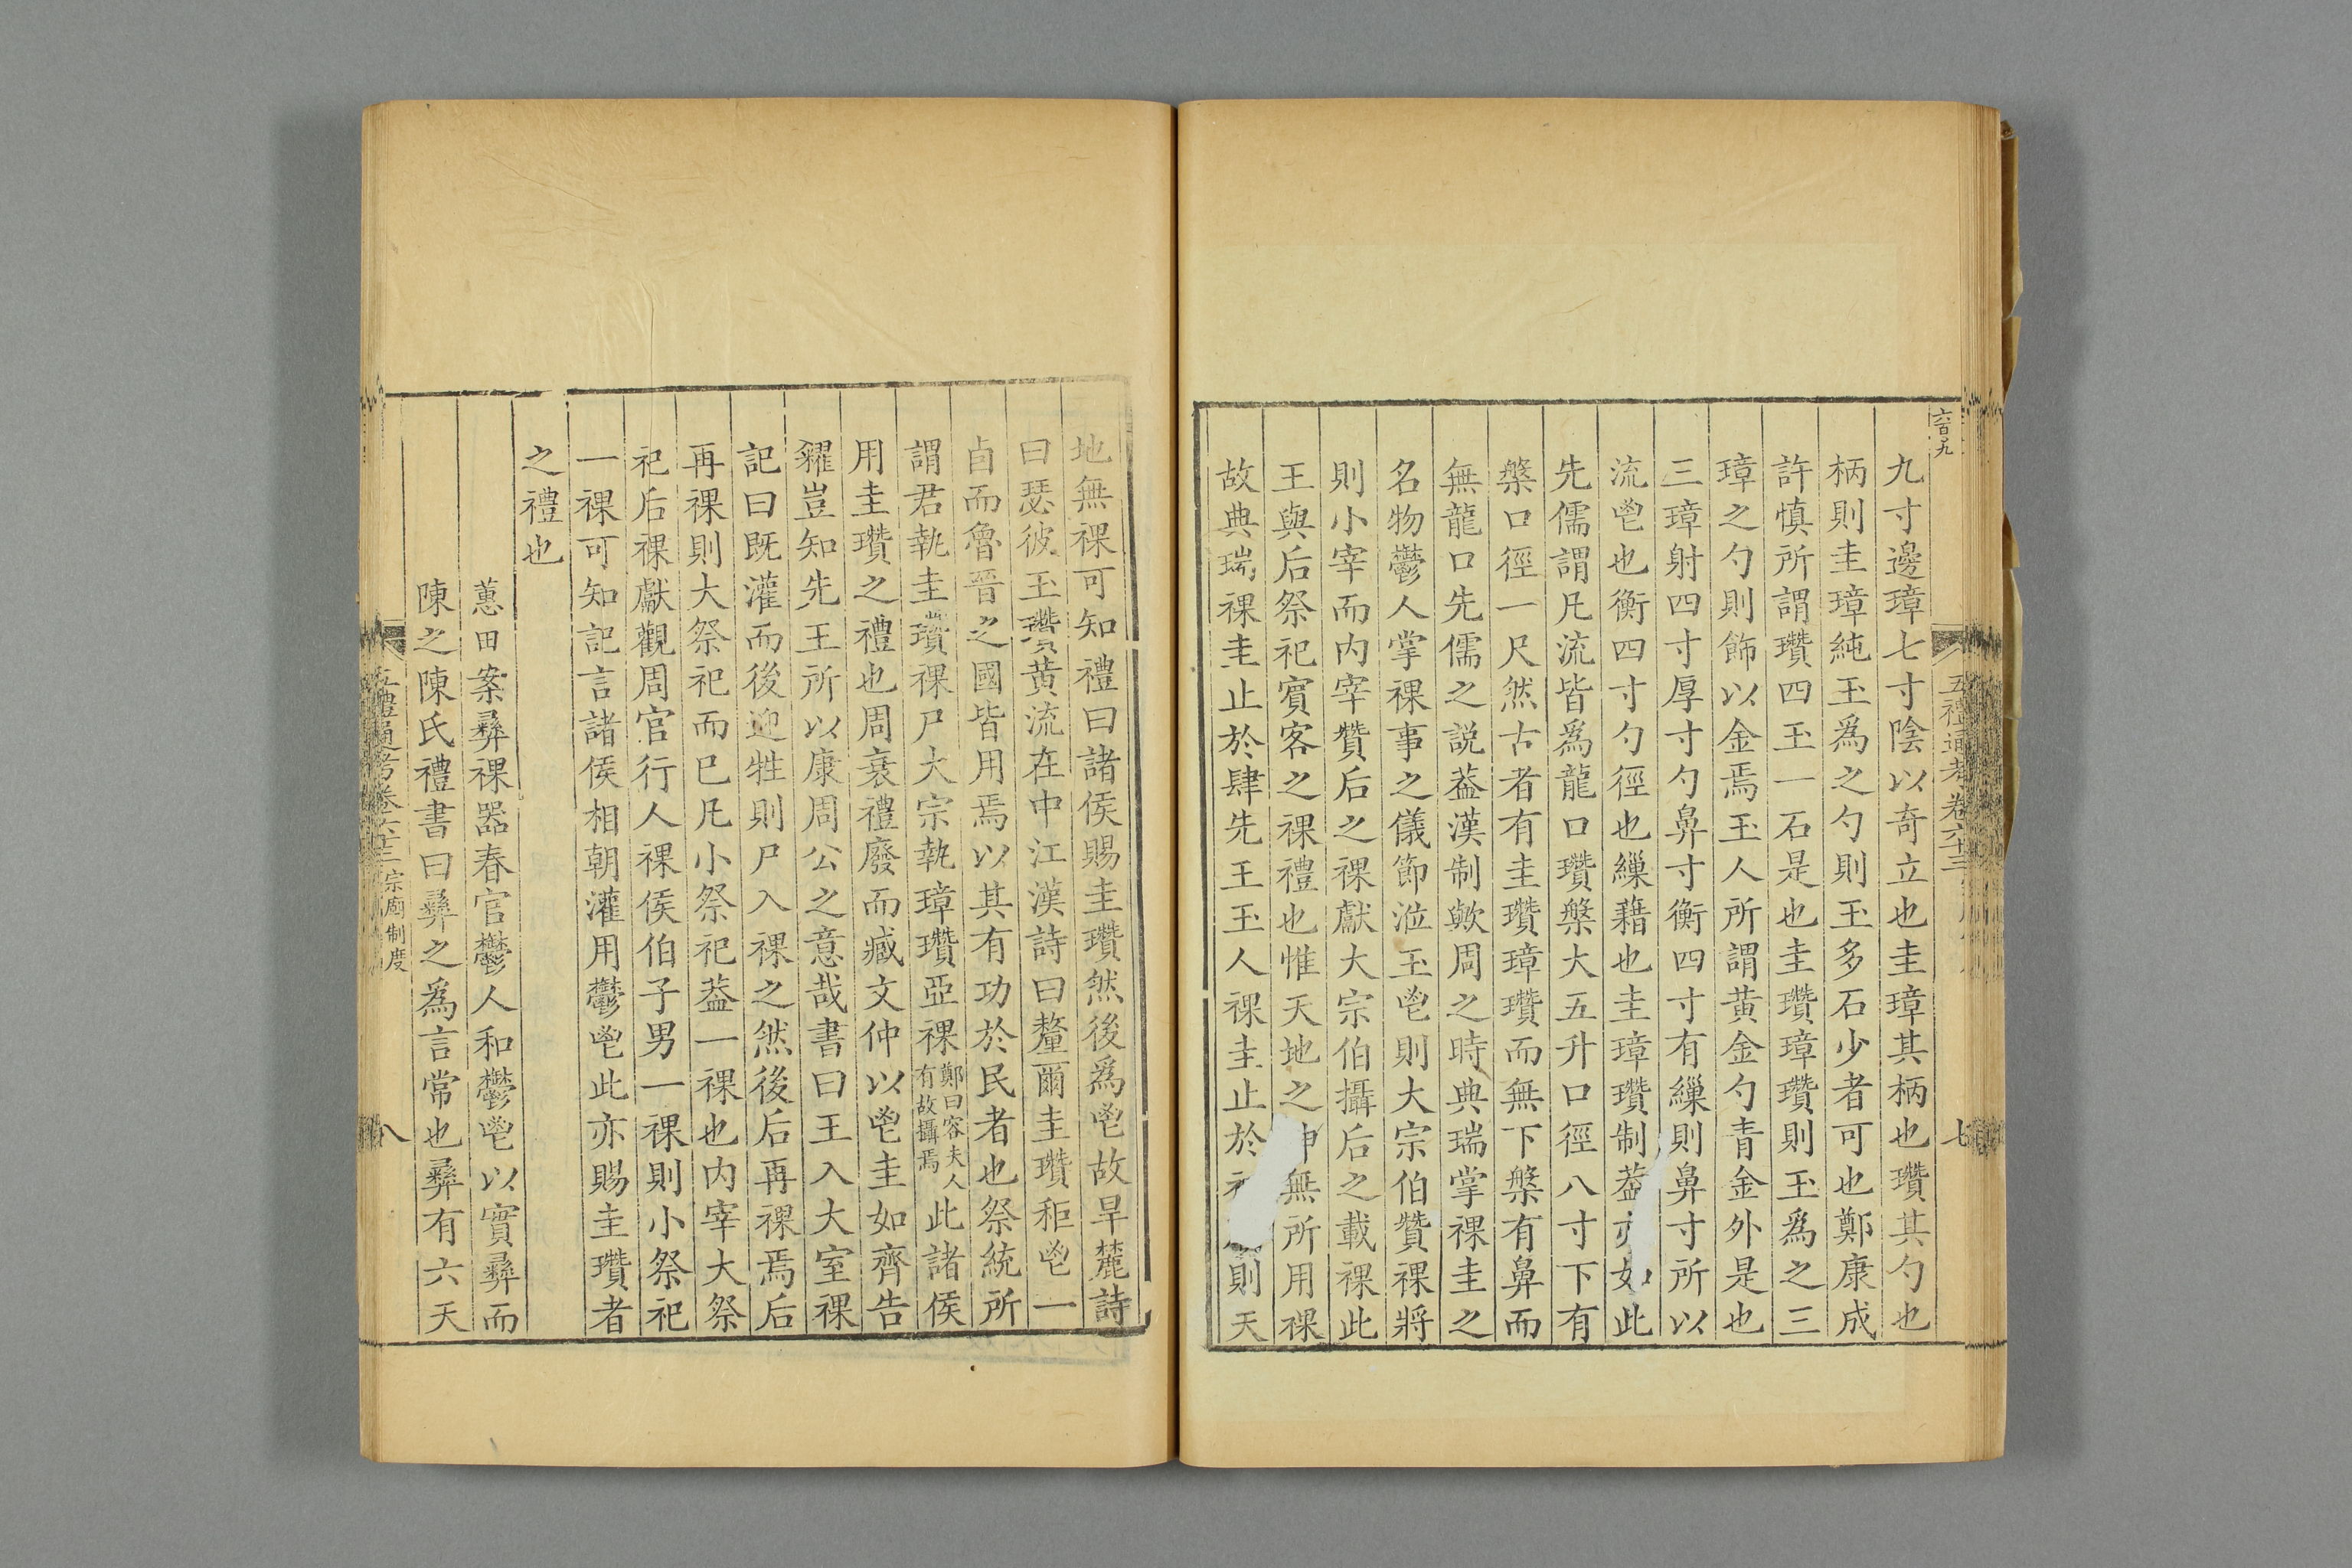 六百九
五禮通考卷六十三
七
九寸邊璋七寸陰以奇立也圭璋其柄也瓚其勺也
柄則圭璋純玉爲之勺則玉多石少者可也鄭康成
許慎所謂瓚四玉一石是也圭瓚璋瓚則玉爲之三
璋之勺則飾以金焉玉人所謂黄金勺青金外是也
三璋射四寸厚寸勺鼻寸衡四寸有繅則鼻寸所以
流鬯也衡四寸勺徑也繅藉也圭璋瓚制葢如此
先儒謂凡流皆爲龍口瓚槃大五升口徑八寸下有
槃口徑一尺然古者有圭瓚璋瓚而無下槃有鼻而
無龍口先儒之説葢漢制歟周之時典瑞掌祼圭之
名物鬱人掌祼事之儀節涖玉鬯則大宗伯贊祼將
則小宰而内宰贊后之祼獻大宗伯攝后之載祼此
王與后祭祀賓客之祼禮也惟天地之神無所用祼
故典瑞祼圭止於肆先王玉人祼圭止於則天
地無祼可知禮曰諸侯賜圭瓚然後爲鬯故旱麓詩
曰瑟彼玉瓚黄流在中江漢詩曰釐爾圭瓚秬鬯一
卣而魯晉之國皆用焉以其有功於民者也祭統所
謂君執圭瓚祼尸大宗執璋瓚亞祼鄭曰容夫人有故攝焉此諸侯
用圭瓚之禮也周衰禮廢而臧文仲以鬯圭如齊告
糴豈知先王所以康周公之意哉書曰王入大室祼
記曰既灌而後迎牲則尸入祼之然後后再祼焉后
再祼則大祭祀而已凡小祭祀葢一祼也内宰大祭
祀后祼獻觀周官行人祼侯伯子男一祼則小祭祀
一祼可知記言諸侯相朝灌用鬱鬯此亦賜圭瓚者
之禮也
蕙田案彝祼器春官鬱人和鬱鬯以實彝而
陳之陳氏禮書曰彝之爲言常也彝有六天
五禮通考卷六十三 宗廟制度
八